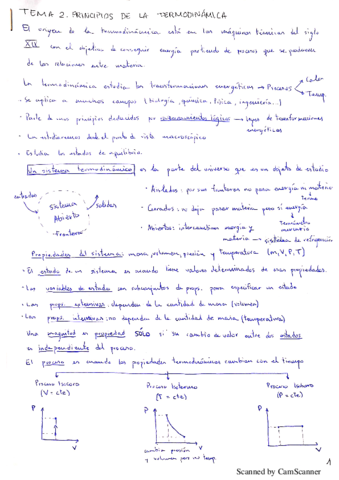 TEMA 2. PRINCIPIOS DE LA TERMODINÁMICA
El origen de la termodinámica está en las máquinas térmicas del siglo
XIX con el objetivo de conseguir energía partiendo de procesos que se producen
de las relaciones entre materia.
La termodinámica estudia las transformaciones energéticas → Procesos Calor
Trabajo
- Se aplica a muchos campos (biología, química, física, ingeniería...)
- Parte de unos principios deducidos por razonamiento lógico → leyes de transformaciones
energéticas
- La estudiaremos desde el punto de vista macroscópico
- Estudia los estados de equilibrio.
Un sistema termodinámico es la parte del universo que es un objeto de estudio
entradas
Sistema
Abierto
Frontera
salidas
· Aislados: por sus fronteras no pasa energía ni materia
Termo
· Cerrados: no dejan pasar materia pero sí energía
· Abiertos: intercambian energía y
materia → sistemas de refrigeración
Propiedades del sistema: masa, volumen, presión y Temperatura (m, V, P, T)
· El estado de un sistema es cuando tiene valores determinados de sus propiedades.
· Las variables de estado son subconjuntos de props. para especificar un estado
· Las prop. extensivas: dependen de la cantidad de masa (volumen)
· Las prop. intensivas: no dependen de la cantidad de masa (temperatura)
Una magnitud es propiedad SÓLO si su cambio de valor entre dos estados
es independiente del proceso.
El proceso es cuando las propiedades termodinámicas cambian con el tiempo
Proceso Isócoro
(V = cte)
Proceso Isotermo
(T = cte)
Proceso Isóbaro
(P = cte)
P
V
P
V
P
V
cambia presión
y volumen pero no temp.
1
Scanned by CamScanner